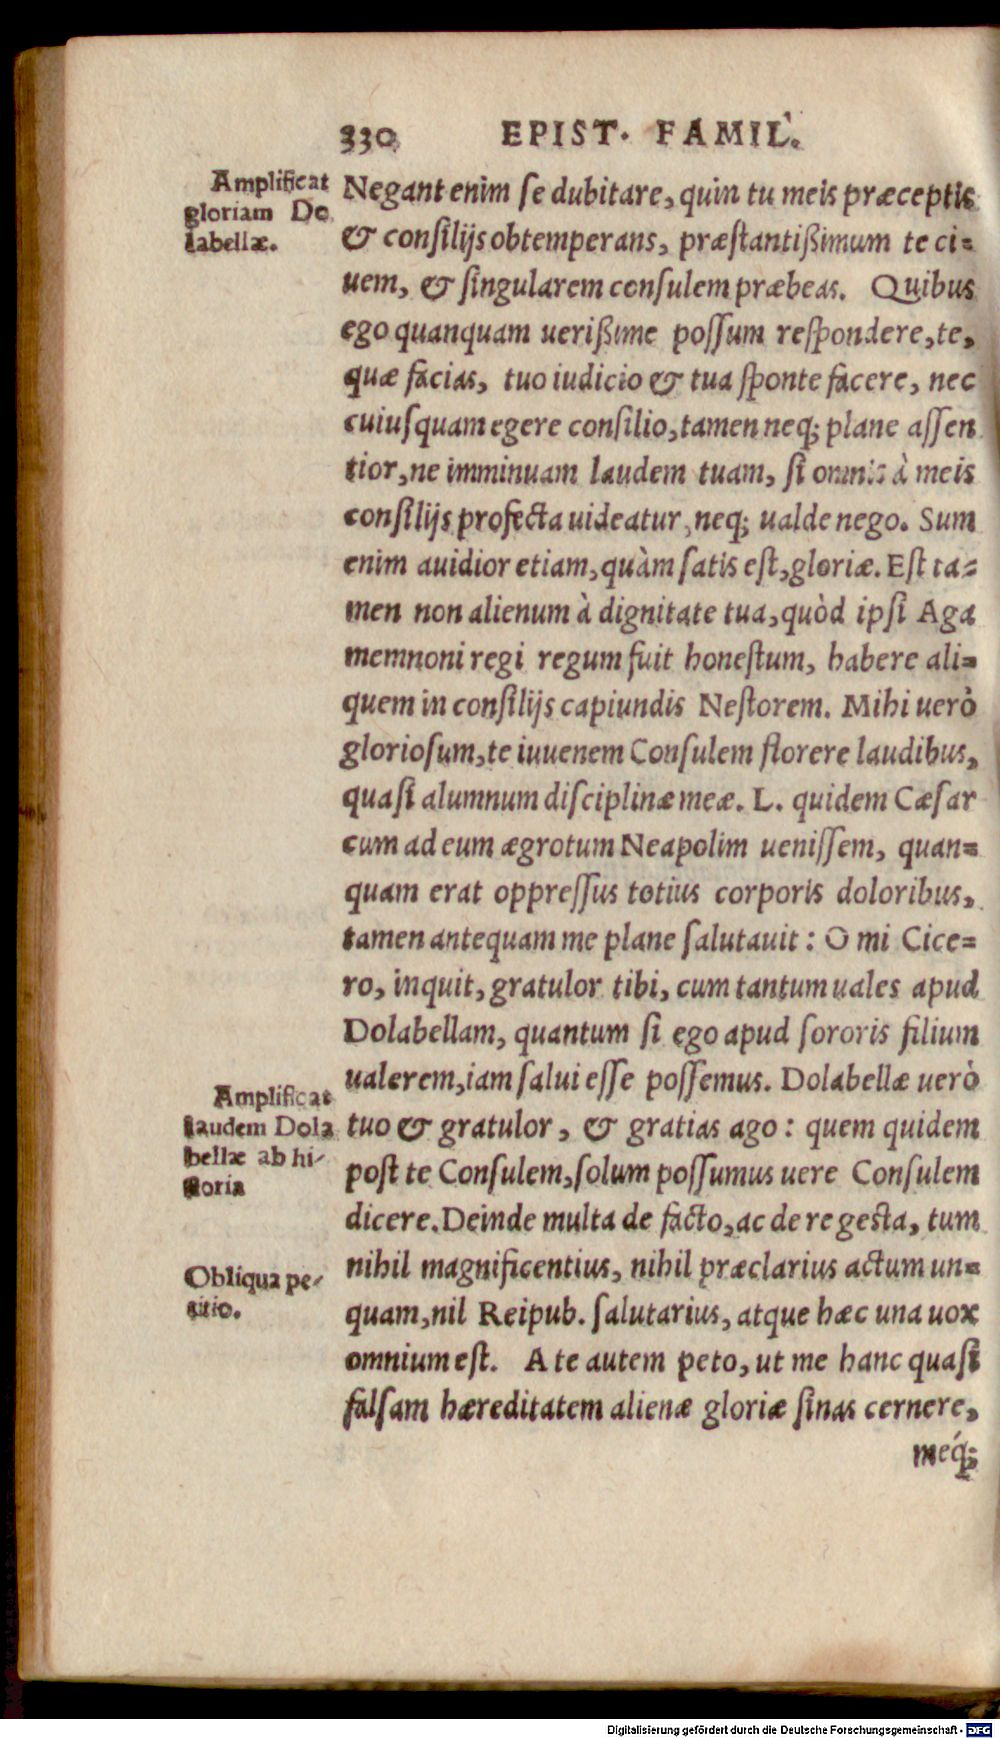 330 EPIST. FAMIL.
Amplificat
gloriam Do
labellæ.
Negant enim ſe dubitare, quin tu meis præceptis
& conſilijs obtemperans, præſtantißimum te ci=
uem, & ſingularem conſulem præbeas. Quibus
ego quanquam uerißime poſſum reſpondere, te,
quæ facias, tuo iudicio & tua ſponte facere, nec
cuiuſquam egere conſilio, tamen neq; plane aſſen
tior, ne imminuam laudem tuam, ſi omnis à meis
conſilijs profecta uideatur, neq; ualde nego. Sum
enim auidior etiam, quàm ſatis eſt, gloriæ. Eſt ta=
men non alienum à dignitate tua, quòd ipſi Aga
memnoni regi regum fuit honeſtum, habere ali=
quem in conſilijs capiundis Neſtorem. Mihi uerò
glorioſum, te iuuenem Conſulem florere laudibus,
quaſi alumnum diſciplinæ meæ. L. quidem Cæſar
cum ad eum ægrotum Neapolim ueniſſem, quan=
quam erat oppreſſus totius corporis doloribus,
tamen antequam me plane ſalutauit: O mi Cice=
ro, inquit, gratulor tibi, cum tantum uales apud
Dolabellam, quantum ſi ego apud ſororis filium
ualerem, iam ſalui eſſe poſſemus. Dolabellæ uerò
Amplificat
laudem Dola
bellæ ab hi-
ſtoria
tuo & gratulor, & gratias ago: quem quidem
poſt te Conſulem, ſolum poſſumus uere Conſulem
dicere. Deinde multa de facto, ac de re geſta, tum
nihil magnificentius, nihil præclarius actum un=
Obliqua pe-
titio.
quam, nil Reipub. ſalutarius, atque hæc una uox
omnium eſt. A te autem peto, ut me hanc quaſi
falſam hæreditatem alienæ gloriæ ſinas cernere,
méq;
Digitalisierung gefördert durch die Deutsche Forschungsgemeinschaft - DFG